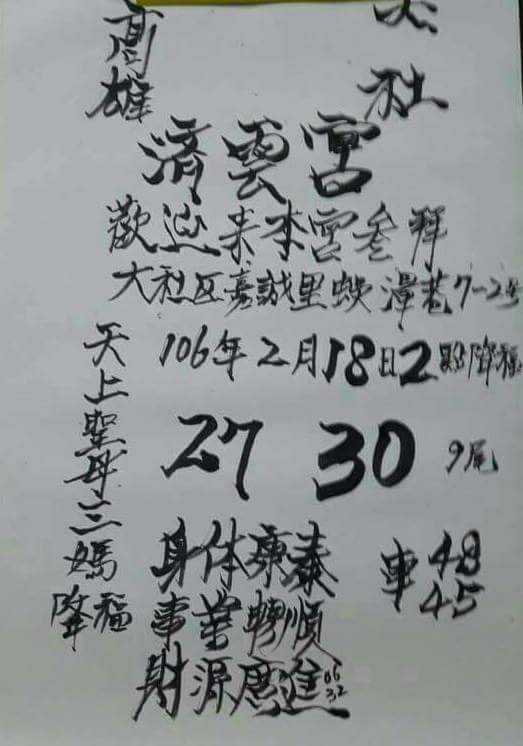 高雄 大社
濟雲宮
歡迎来本宮叁拜
大社区嘉誠里蜈潭巷7-2号
106年2月18日2點降福
27 30 9尾
天上聖母三媽降福
身体康泰
事業轉順
財源廣進 06 32
車 48 45